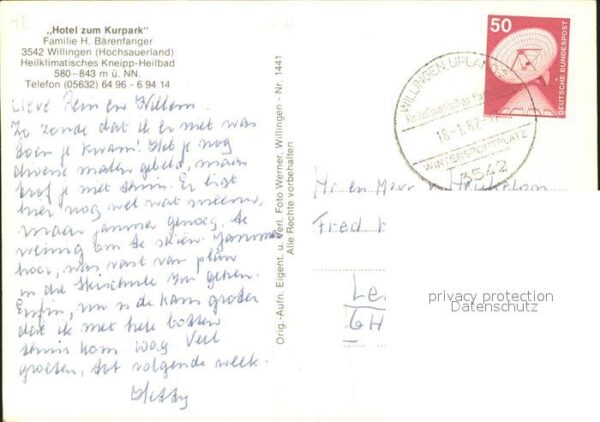 „Hotel zum Kurpark"
Familie H. Bärenfanger
3542 Willingen (Hochsauerland)
Heilklimatisches Kneipp-Heilbad
580–843 m ü. NN.
Telefon (05632) 64 96 - 6 94 14
Lieve en Willem.
Zo zonde dat ik er niet was
toen je kwam! Heb je nog
diverse malen gebeld, maar
trof je niet thuis. Er ligt
hier nog wel wat sneeuw,
maar jammer genoeg, te
weinig om te skiën. Jammer
hoor, was vast van plan
in die Skischule te gaan.
Enfin, nu is de kans groter
dat ik met hele botten
thuis kom. Veel
groeten, tot volgende week.
Hetty
Orig.-Aufn. Eigent. u. Verl. Foto Werner, Willingen - Nr. 1441
Alle Rechte vorbehalten
50
DEUTSCHE BUNDESPOST
WILLINGEN, UPLAND
Heilklimatisches
18.-1.82
WINTERSPORTPLATZ
3542
en Mevr
Fred
Le
GH
privacy protection
Datenschutz